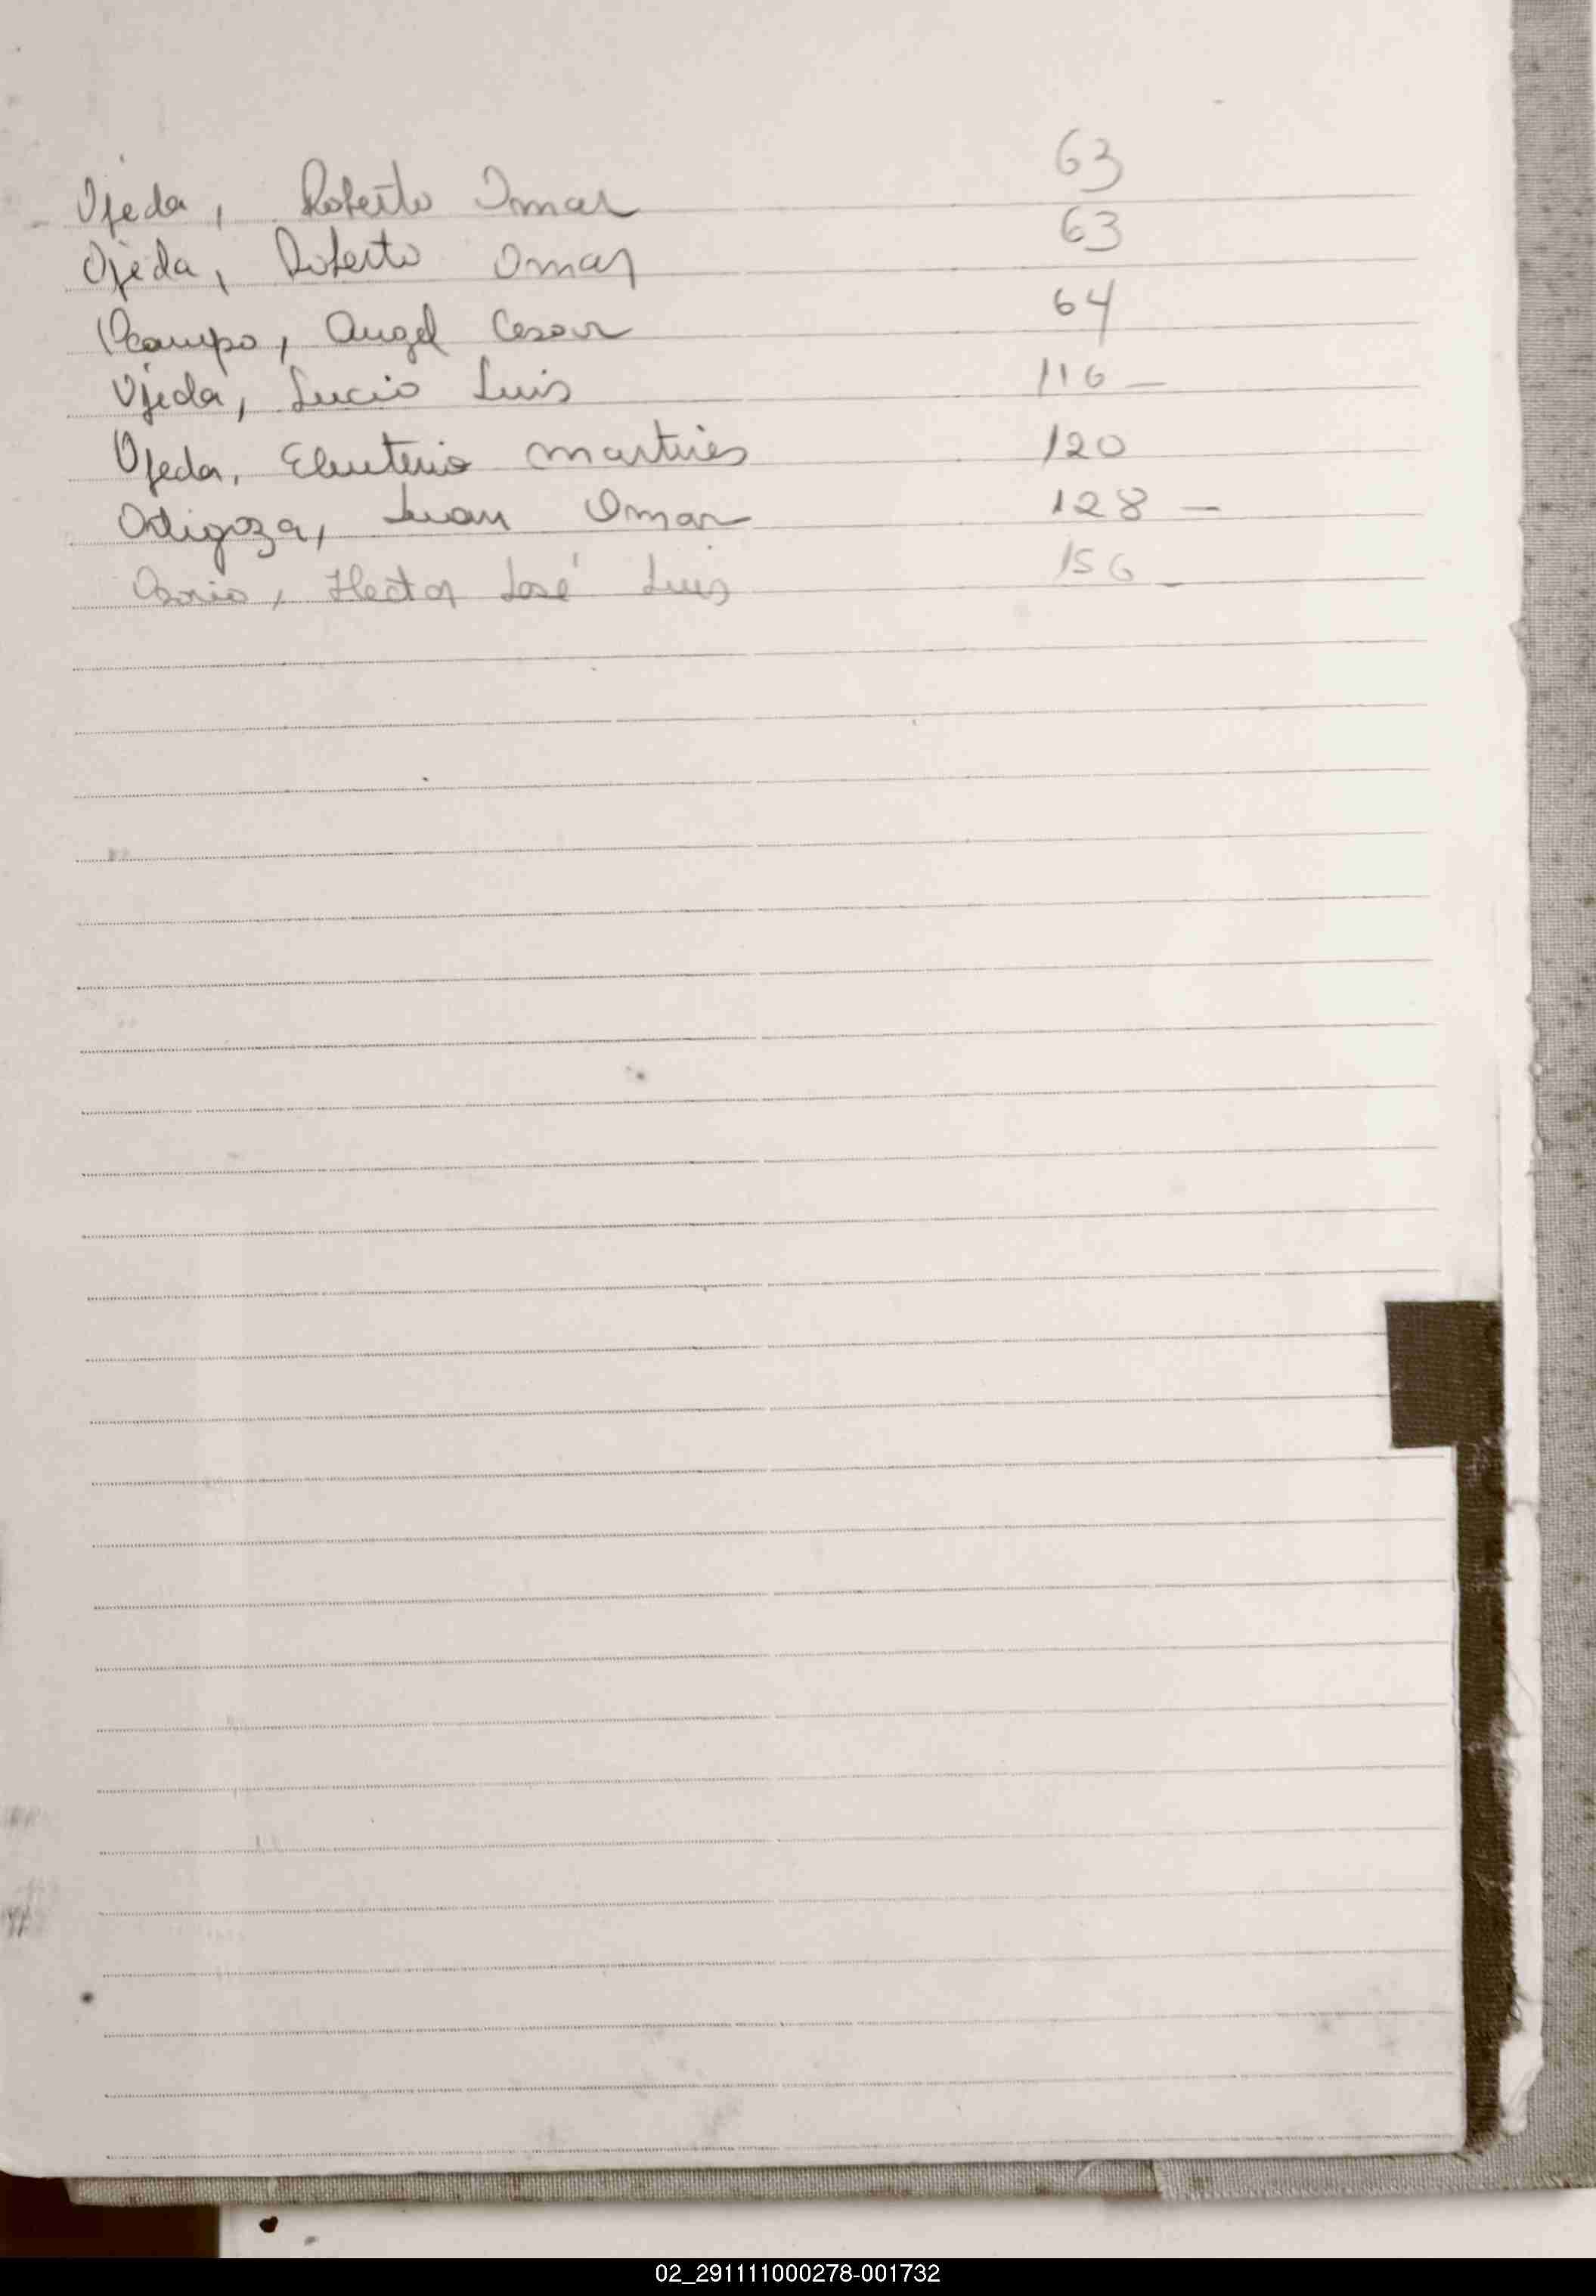 Ojeda, Roberto Omar 63
Ojeda, Roberto Omar 63
Ocampo, Angel Cesar 64
Ojeda, Lucio Luis 116 –
Ojeda, Eleuterio Martires 120
Ortigoza, Juan Omar 128 –
Osorio, Hector José Luis 156 –
02_291111000278-001732